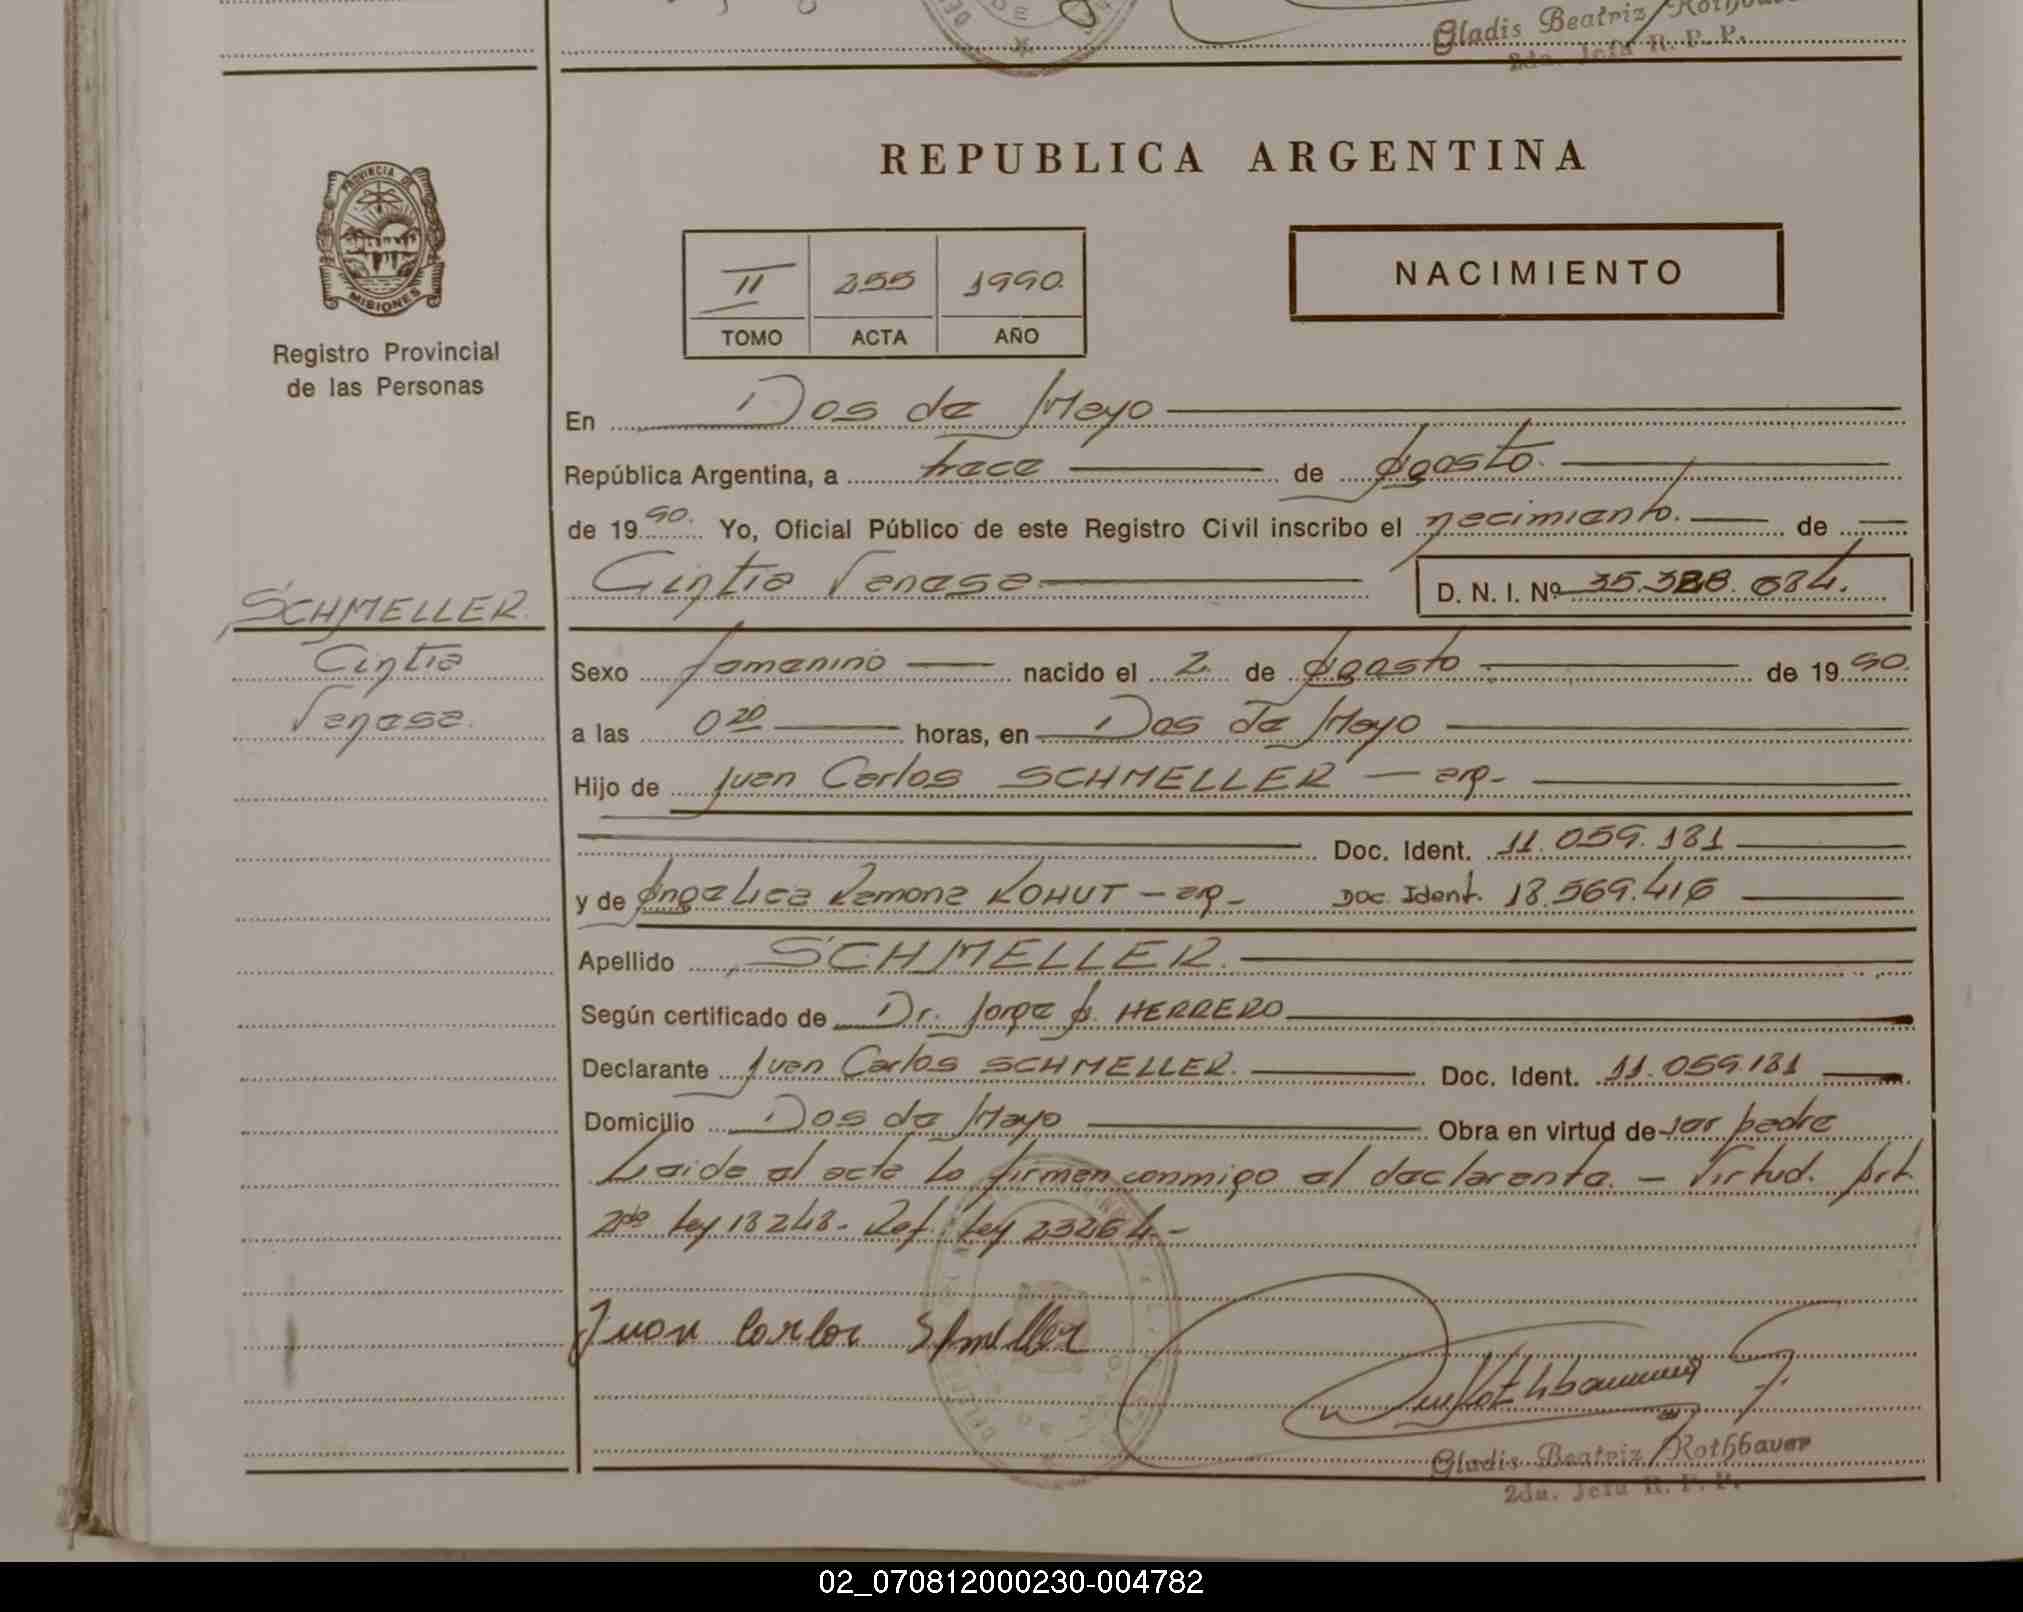 Gladis Beatriz
2da. Jefa R. P. P.
REPUBLICA ARGENTINA
PROVINCIA DE
MISIONES
Registro Provincial
de las Personas
II 255 1990.
TOMO ACTA AÑO
NACIMIENTO
En Dos de Mayo
República Argentina, a trece de Agosto.
de 1990. Yo, Oficial Público de este Registro Civil inscribo el nacimiento. de
Cintia Vanesa D. N. I. Nº 35.328.684.
SCHMELLER.
Cintia
Vanesa.
Sexo femenino nacido el 2 de Agosto de 1990.
a las 0 20 horas, en Dos de Mayo
Hijo de Juan Carlos SCHMELLER — arg-
Doc. Ident. 11.059.181
y de Angelica Ramona KOHUT - arg- Doc. Ident. 18.569.416
Apellido SCHMELLER.
Según certificado de Dr. Jorge A. HERRERO
Declarante Juan Carlos SCHMELLER. Doc. Ident. 11.059.181
Domicilio Dos de Mayo Obra en virtud de ser padre
Leida el acta la firman conmigo el declarante. - Virtud. Art.
2do Ley 18248- Ref. Ley 23264.-
Juan Carlos Schmeller
Gladis Beatriz Rothbauer
2da. Jefa R. P. P.
02_070812000230-004782